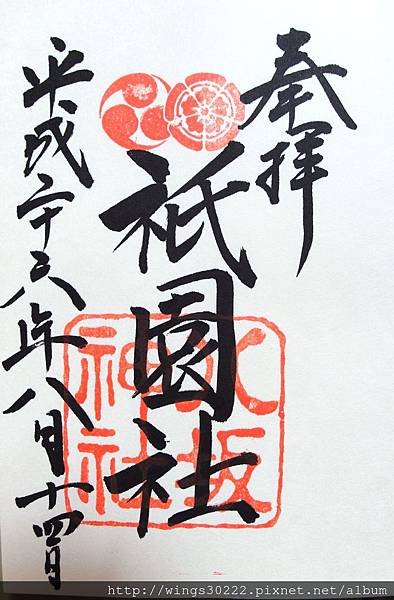 奉拝
祇園社
八坂神社
平成二十六年八月十四日
http://wings30222.pixnet.net/album